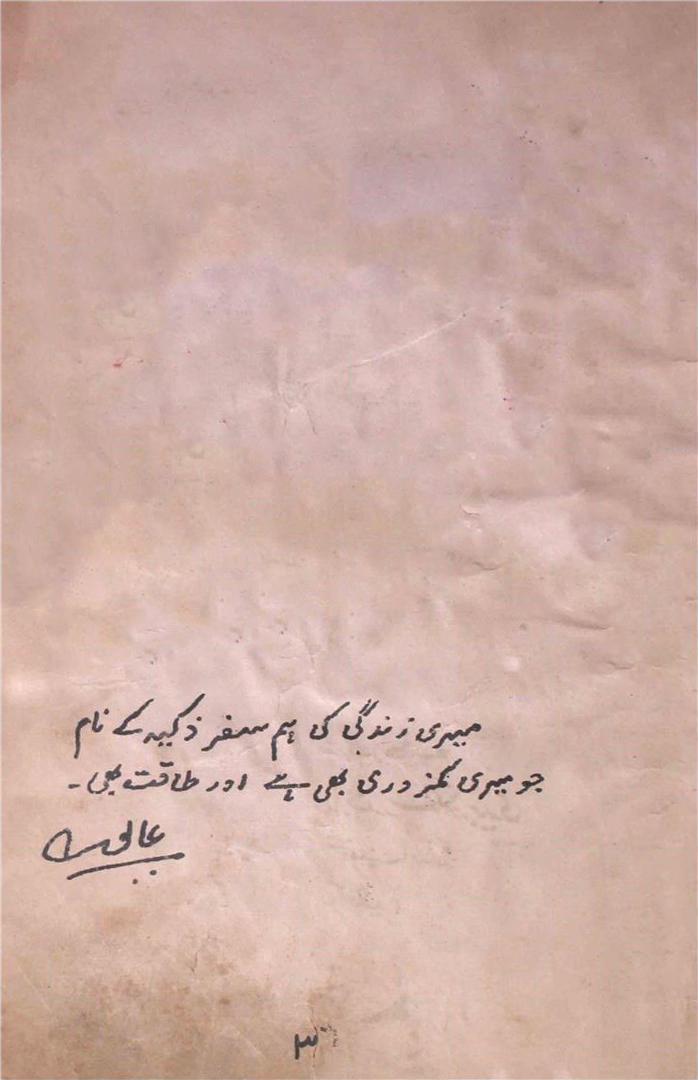 میری زندگی کی ہم سفر ذکیہ کے نام
جو میری کمزوری بھی ہے اور طاقت بھی۔
عالی
۳